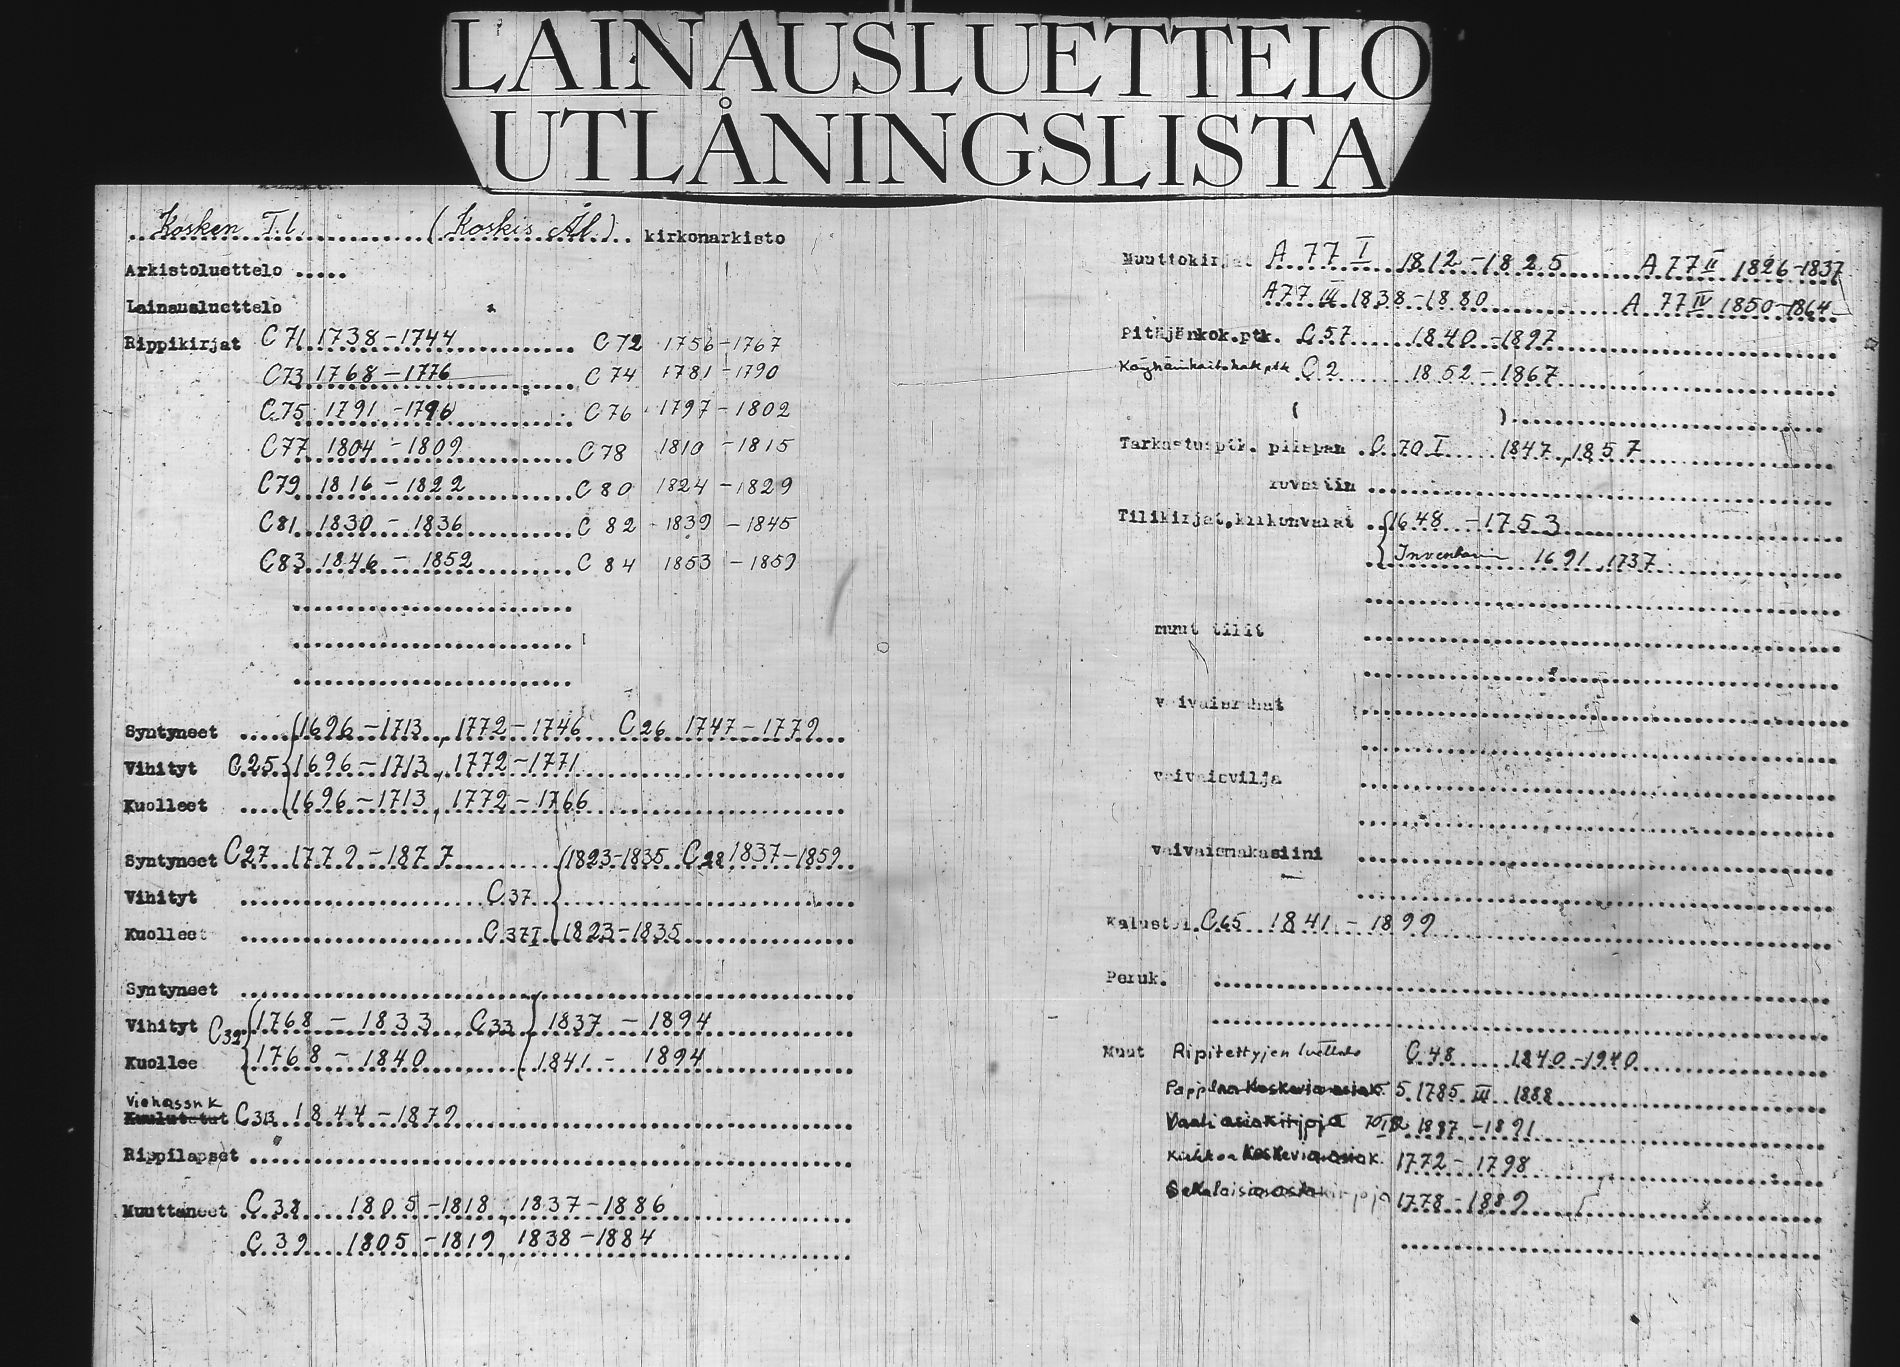 LAINAUSLUETTELO
UTLÅNINGSLISTA
Kosken T.l. (Koskis Ål.) kirkonarkisto
Arkistoluettelo .....
Lainausluettelo
Rippikirjat C71 1738-1744 C72 1756-1767
C73 1768-1776 C74 1781-1790
C75 1791-1796 C76 1797-1802
C77 1804-1809 C78 1810-1815
C79 1816-1822 C80 1824-1829
C81 1830-1836 C82 1839-1845
C83 1846-1852 C84 1853-1859
Syntyneet 1696-1713, 1772-1746 C26 1747-1779
Vihityt C25 1696-1713, 1772-1771
Kuolleet 1696-1713, 1772-1766
Syntyneet C27 1779-1877 1823-1835 C28 1837-1859
Vihityt C37
Kuolleet C37I 1823-1835
Syntyneet
Vihityt C32 1768-1833 C33 1837-1894
Kuollee 1768-1840 1841-1894
Kuulutetut C313 1844-1879
Rippilapset
Muuttaneet C38 1805-1818, 1837-1886
C39 1805-1819, 1838-1884
Muuttokirjat A 77 I 1812-1825 A 77 II 1826-1837
A 77 III 1838-1880 A 77 IV 1850-1864
Pitäjänkok.ptk. C57 1840-1897
C2 1852-1867
( )
Tarkastusptk. piispan C 70 I 1847, 1857
rovastin
Tilikirjat, kirkonvarat 1648-1753
1691, 1737
muut tilit
vaivaisrahat
vaivaisvilja
vaivaismakasiini
Kalustol. C65 1841-1899
Peruk.
Muut Ripitettyjen luettelo C48 1840-1940
Pappilaa koskevia asiak. 5 1785 III 1888
Vaali asiakirjoja 1887-1891
Kirkkoa koskevia asiak. 1772-1798
Sekalaisia asiakirjoja 1778-1889